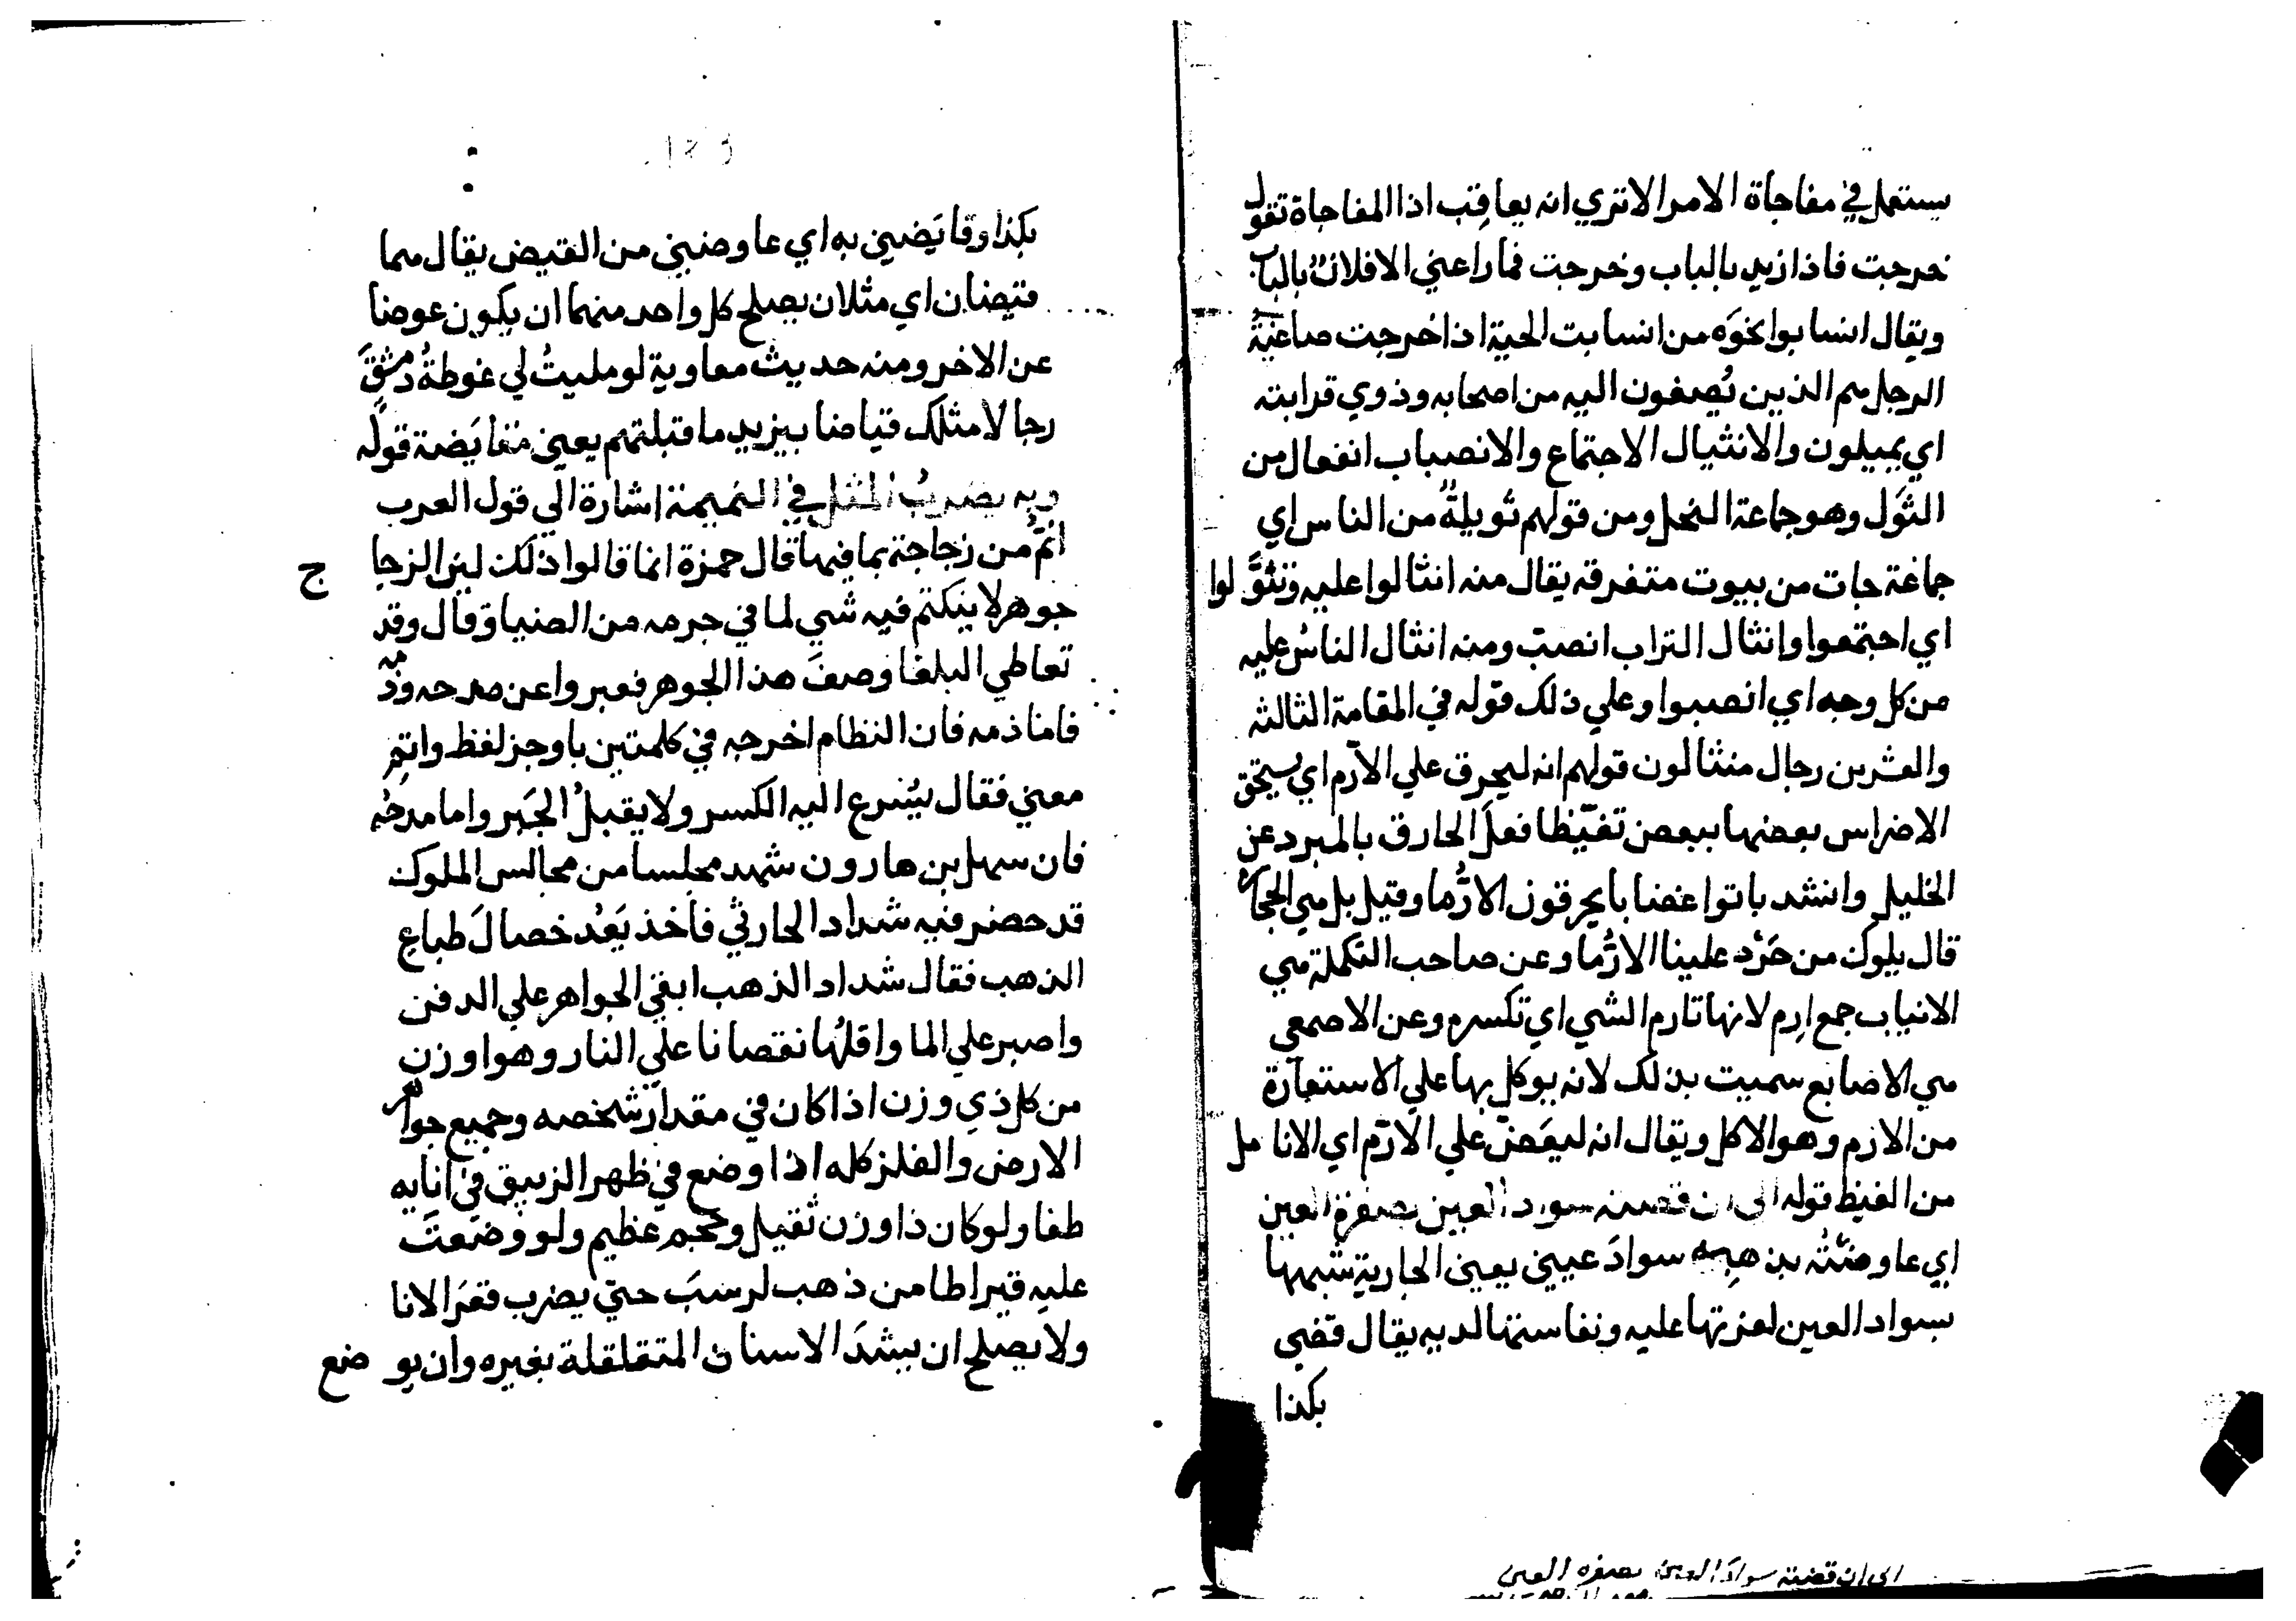 يستعمل في مفاجأة الامر الا تري انه يعاقب اذا المفاجاة تقول
خرجت فاذا زيد بالباب وخرجت فما راعني الا فلان بالباب
ويقال انسابوا نحوه من انسابت الحية اذا خرجت صاغية
الرجل هم الذين يُصغون اليه من اصحابه وذوي قرابته
اي يميلون والانثيال الاجتماع والانصباب انفعال من
الثَول وهو جماعة النحل ومن قولهم ثويلةٌ من الناس اي
جماعة جات من بيوت متفرقه يقال منه انثالوا عليه وتثوَّلوا
اي اجتمعوا وانثال التراب انصب ومنه انثال الناسُ عليه
من كل وجه اي انصبوا وعلي ذلك قوله في المقامة الثالثه
والعشرين رجال منثالون قولهم انه ليحرق علي الأرّم اي يسحق
الاضراس بعضها ببعض تغيّظا فعل الحارق بالمبرد عن
الخليل وانشد باتوا غضابا يحرقون الارُّما وقيل بل هي الحجارة
قال يلوك من حَرْد علينا الارُّما وعن صاحب التكملة هي
الانياب جمع ارِم لانها تارم الشي اي تكسره وعن الاصمعي
هي الاصابع سميت بذلك لانه يوكل بها علي الاستعارة
من الارم وهو الاكل ويقال انه ليعَض علي الارّم اي الانامل
من الغيظ قوله الى ان قضته سواد العين بصفرة العين
اي عاوضتُه بذهبه سوادَ عيني يعني الجارية شبهها
بسواد العين لعزتها عليه ونفاستها لديه يقال قضي
بكذا
الى ان قضته سواد العين بصفره العين
بكذا وقايَضني به اي عاوضني من القيض يقال هما
قيضان اي مثلان يصلح كل واحد منهما ان يكون عوضا
عن الاخر ومنه حديث معاوية لو مليتُ لي غوطةُ دمشقَ
رجالا مثلك قياضا بيزيد ما قبلتهم يعني مقايَضة قوله
وبه يضربُ المثل في النميمة اشارة الي قول العرب
انَمُّ من زجاجة بما فيها قال حمزة انما قالوا ذلك لين الزجا ج
جوهر لا ينكتم فيه شي لما في جرمه من الضيا وقال وقد
تعاطي البلغا وصفَ هذا الجوهر فعبروا عن مدحه وذمه
فاما ذمه فان النظام اخرجه في كلمتين باوجز لفظ واتم
معني فقال يُسرع اليه الكسر ولا يقبلُ الجَبر واما مدحُه
فان سهل بن هارون شهد مجلسا من مجالس الملوك
قد حضر فيه شداد الحارثي فاخذ يَعُد خصالَ طباع
الذهب فقال شداد الذهب ابقي الجواهر علي الدفن
واصبر علي الما واقلُها نقصانا علي النار وهو اوزن
من كل ذي وزن اذا كان في مقدار شخصه وجميع جواهر
الارض والفلز كله اذا وضع في ظهر الزيبق في انايه
طفا ولو كان ذا وزن ثقيل وحجم عظيم ولو وضعتَ
عليه قيراطا من ذهب لرسبَ حتي يضرب قعرَ الانا
ولا يصلح ان يشدَ الاسنان المتقلقلة بغيره وان يوضع